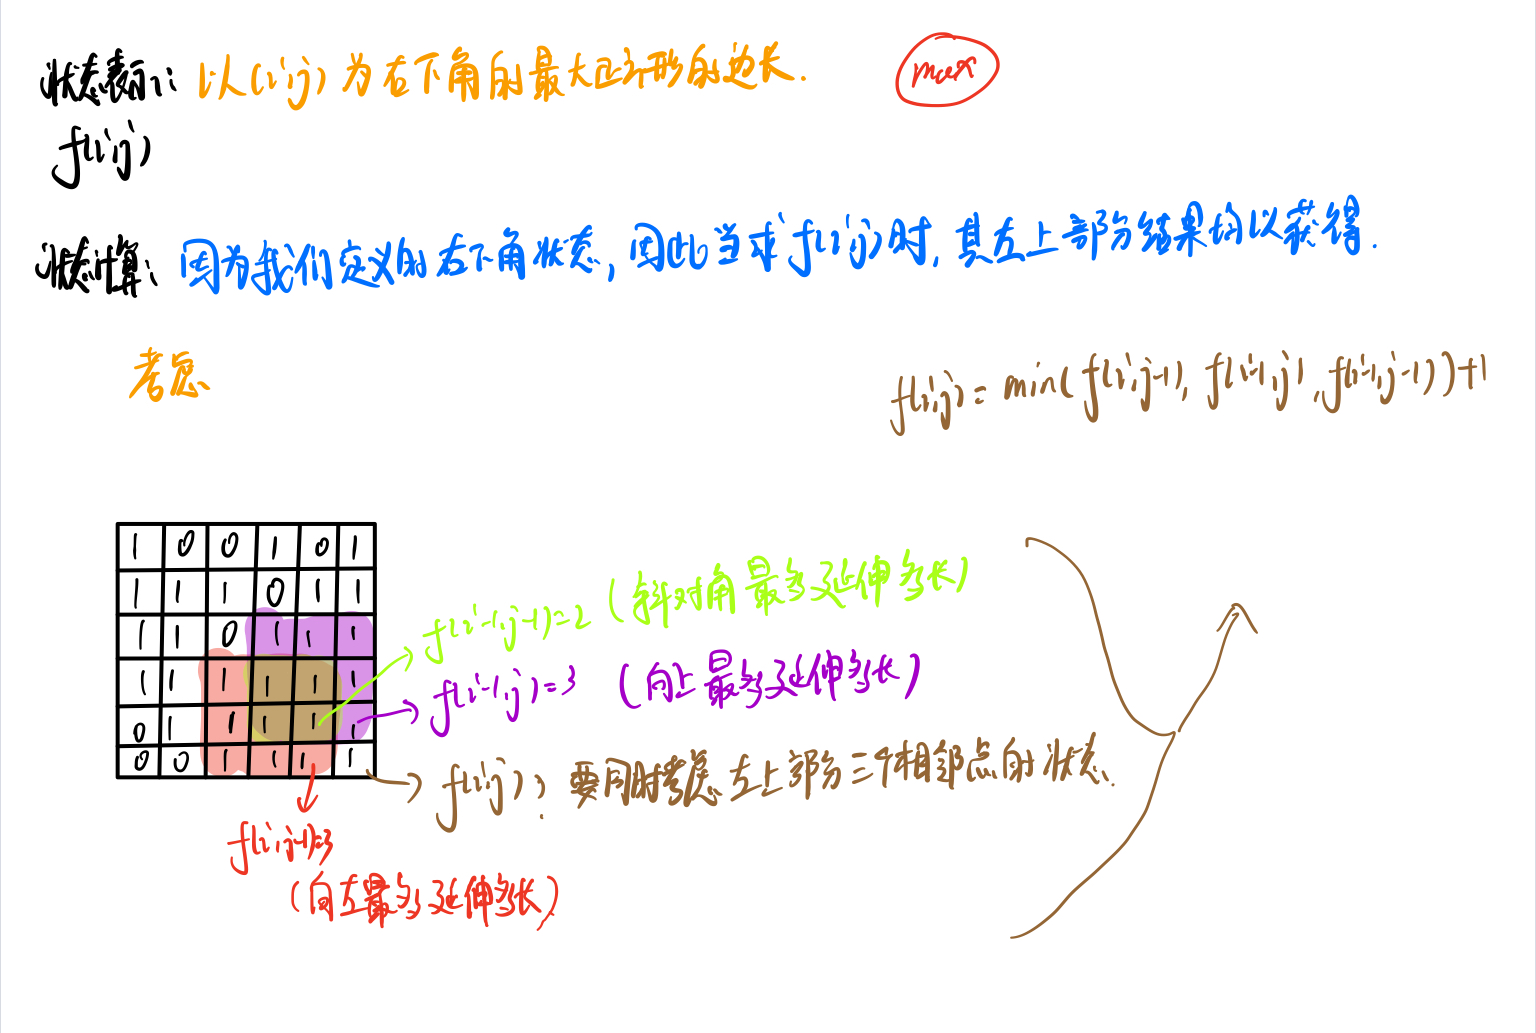 状态表示: 以(i,j)为右下角的最大正方形的边长. max
f(i,j)
状态计算: 因为我们定义的右下角状态, 因此当求f(i,j)时, 其左上部分结果均以获得.
考虑
f(i,j) = min(f(i,j-1), f(i-1,j), f(i-1,j-1))+1
1 0 0 1 0 1
1 1 1 0 1 1
1 1 0 1 1 1
1 1 1 1 1 1
0 1 1 1 1 1
0 0 1 1 1 1
f(i-1,j-1)=2 (斜对角最多延伸多长)
f(i-1,j)=3 (向上最多延伸多长)
f(i,j)? 要同时考虑左上部分三个相邻点的状态.
f(i,j-1)=3
(向左最多延伸多长)